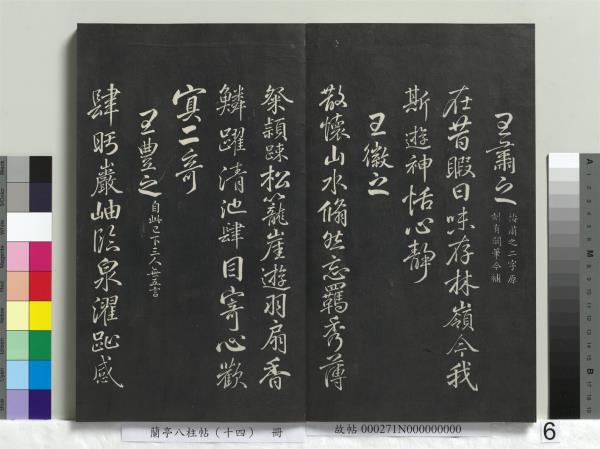 王肅之
按肅之二字原
刻有闕筆今補
在昔暇日味存林嶺今我
斯遊神恬心靜
王徽之
散懷山水翛然忘羈秀薄
粲穎踈松籠崖遊羽扇香
鱗躍清池肆目寄心歡
寘二奇
王豊之
自此已下三人無五言
肆眄巖岫臨泉濯趾感
蘭亭八柱帖（十四） 冊
故帖 000271N000000000
6